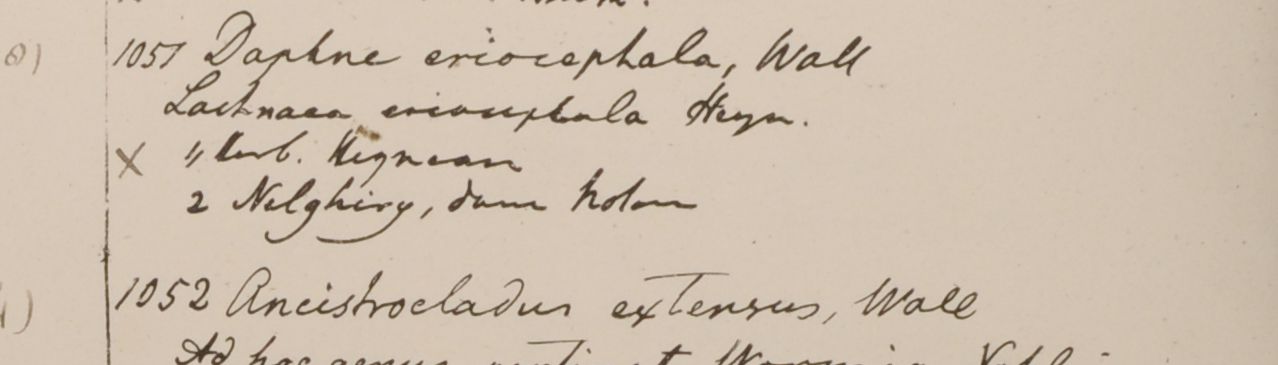 1051 Daphne eriocephala, Wall
Lachnaea eriocephala Heyn.
Herb. Heynean
2 Nelghiry, dom Noton
1052 Ancistrocladus extensus, Wall
Ad hoc genus